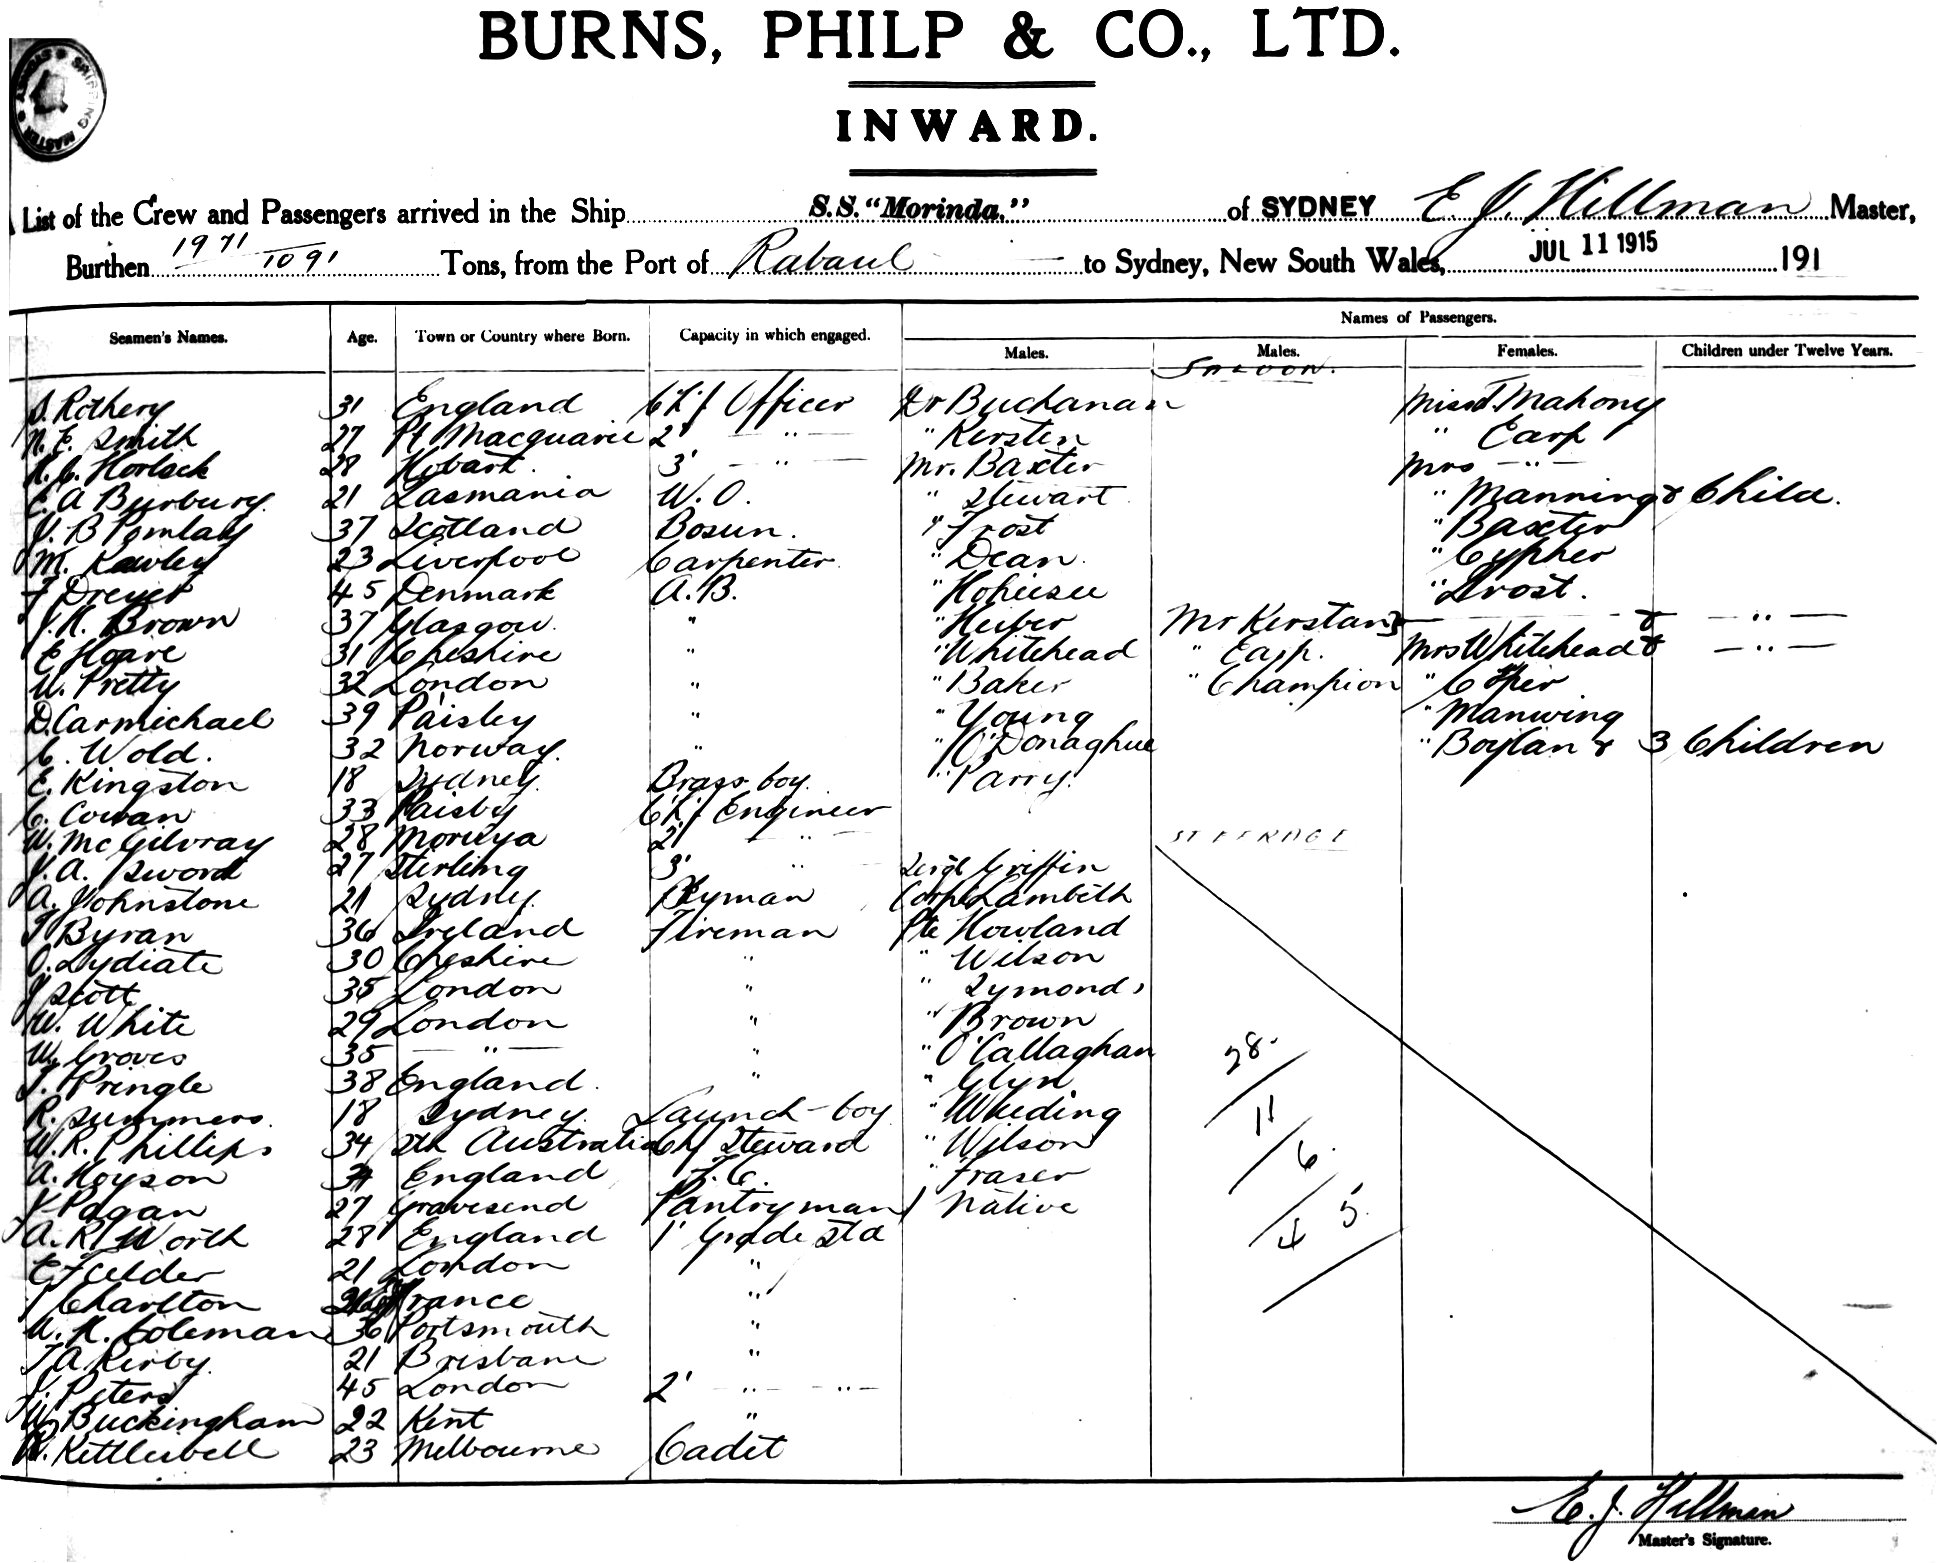 BURNS, PHILP & CO., LTD.
INWARD.
SHIPPING MASTER SYDNEY
List of the Crew and Passengers arrived in the Ship S.S. "Morinda." of SYDNEY E. J. Hillman Master,
Burthen 1971 / 1091 Tons, from the Port of Rabaul to Sydney, New South Wales, JUL 11 1915 191
Names of Passengers.
Seamen's Names. Age. Town or Country where Born. Capacity in which engaged. Males. Males. Females. Children under Twelve Years.
SALOON.
S. Rothery 31 England Ch.f Officer Dr Buchanan Miss J. Mahony
N. E. Smith 27 Pt. Macquarie 2' — " — " Kersten " Earp
28 Hobart. 3' — " — Mr. Baxter Mrs — " —
E. A Burbury. 21 Tasmania W. O. " Stewart " Manning & Child.
J. B Pomlay 37 Scotland Bosun. " Frost " Baxter
M. Kawley 23 Liverpool Carpenter. " Dean. " Cypher
F Dreyer 45 Denmark A. B. " " Frost.
J. H. Brown 37 Glasgow. " " Heuber Mr Kerstan — & — " —
E Hoare 31 Cheshire " " Whitehead " Earp. Mrs Whitehead & — " —
W. Pretty 32 London " " Baker " Champion "
D. Carmichael 39 Paisley " " Young " Manwing
C. Wold. 32 Norway. " " O'Donaghue " Boylan & 3 Children
E. Kingston 18 Sydney. Brass boy. " Parry.
C. Cowan 33 Paisley Ch.f Engineer
W. McGilvray 28 Moruya 2' " STEERAGE
J. A. Sword 27 Sterling 3' " Sergt Griffin
A. Johnstone 21 Sydney. Corpl Lambeth
T Byran 36 Ireland Fireman Pte Howland
O. Lydiate 30 Cheshire " " Wilson
J Scott 35 London " " Symonds
W. White 29 London " " Brown
W. Groves 35 — " — " " O'Callaghan
T. Pringle 38 England. " " Glyn
R. Summers. 18 Sydney. Launch-boy " Weeding
W. R. Phillips 34 Sth Australia Ch.f Steward " Wilson
A. Hoyson England " Fraser
J Pagan 27 Gravesend Pantryman 1 Native
A. R. Worth 28 England 1' Grade Std
E Felder 21 London "
Charlton France "
W. H. Coleman 36 Portsmouth "
T A. Kirby. 21 Brisbane "
J. Peters 45 London 2' — " — " —
W Buckingham 22 Kent "
R. Kettlewell 23 Melbourne Cadet
11
6.
5.
4
E. J. Hillman
Master's Signature.